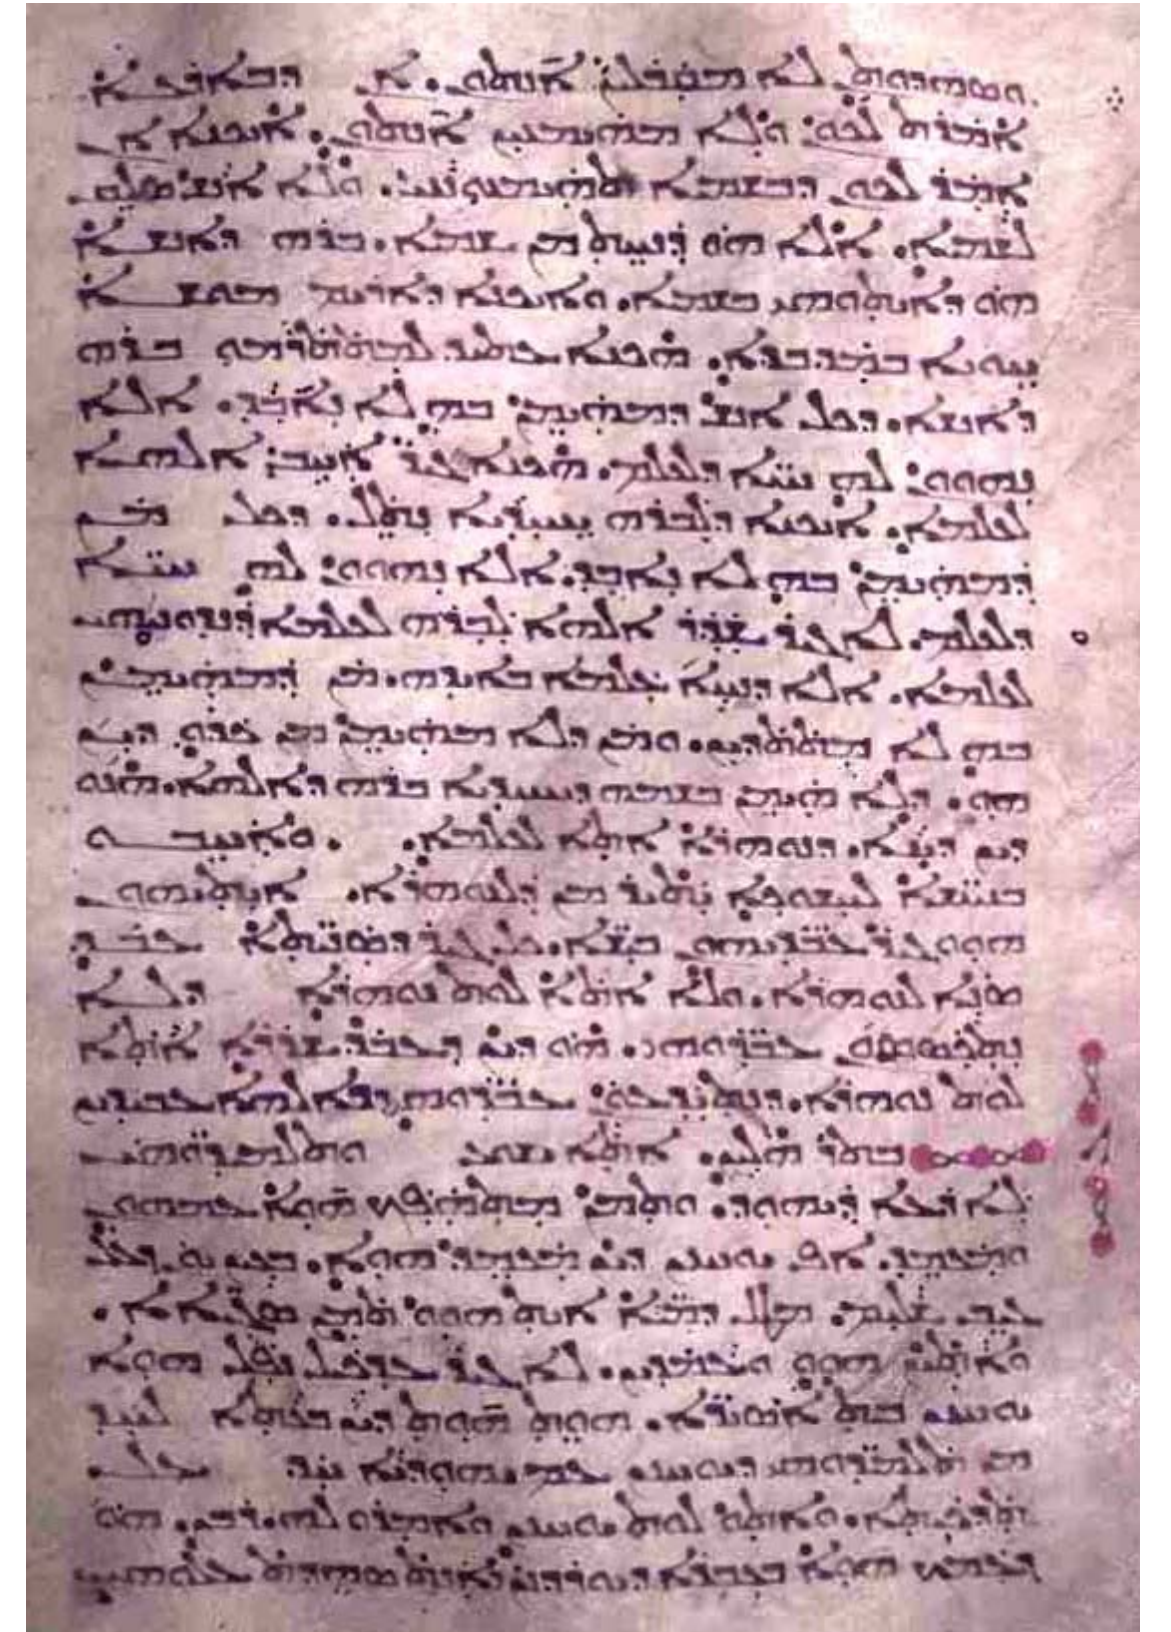 ܘܣܗܕܘܬܢ ܠܐ ܡܩܒܠܝܢ ܐܢܬܘܢ. ܐܢ ܕܒܐܪܥܐ
ܐܡܪܬ ܠܟܘܢ ܘܠܐ ܡܗܝܡܢܝܢ ܐܢܬܘܢ. ܐܝܟܢܐ ܐܢ
ܐܡܪ ܠܟܘܢ ܕܒܫܡܝܐ ܬܗܝܡܢܘܢܢܝ. ܘܠܐ ܐܢܫ ܣܠܩ
ܠܫܡܝܐ. ܐܠܐ ܗܘ ܕܢܚܬ ܡܢ ܫܡܝܐ. ܒܪܗ ܕܐܢܫܐ
ܗܘ ܕܐܝܬܘܗܝ ܒܫܡܝܐ. ܘܐܝܟܢܐ ܕܐܪܝܡ ܡܘܫܐ
ܚܘܝܐ ܒܡܕܒܪܐ. ܗܟܢܐ ܥܬܝܕ ܠܡܬܬܪܡܘ ܒܪܗ
ܕܐܢܫܐ. ܕܟܠ ܐܢܫ ܕܡܗܝܡܢ ܒܗ ܠܐ ܢܐܒܕ. ܐܠܐ
ܢܗܘܘܢ ܠܗ ܚܝܐ ܕܠܥܠܡ. ܗܟܢܐ ܓܝܪ ܐܚܒ ܐܠܗܐ
ܠܥܠܡܐ. ܐܝܟܢܐ ܕܠܒܪܗ ܝܚܝܕܝܐ ܢܬܠ. ܕܟܠ ܡܢ
ܕܡܗܝܡܢ ܒܗ ܠܐ ܢܐܒܕ. ܐܠܐ ܢܗܘܘܢ ܠܗ ܚܝܐ
ܕܠܥܠܡ. ܠܐ ܓܝܪ ܫܕܪ ܐܠܗܐ ܠܒܪܗ ܠܥܠܡܐ ܕܢܕܘܢܝܘܗܝ
ܠܥܠܡܐ. ܐܠܐ ܕܢܚܐ ܥܠܡܐ ܒܐܝܕܗ. ܡܢ ܕܡܗܝܡܢ
ܒܗ ܠܐ ܡܬܬܕܝܢ. ܘܡܢ ܕܠܐ ܡܗܝܡܢ ܡܢ ܟܕܘ ܕܝܢ
ܗܘ. ܕܠܐ ܗܝܡܢ ܒܫܡܗ ܕܝܚܝܕܝܐ ܒܪܗ ܕܐܠܗܐ. ܗܢܘ
ܕܝܢ ܕܝܢܐ. ܕܢܘܗܪܐ ܐܬܐ ܠܥܠܡܐ. ܘܐܚܒܘ
ܒܢܝܢܫܐ ܠܚܫܘܟܐ ܝܬܝܪ ܡܢ ܕܠܢܘܗܪܐ. ܐܝܬܝܗܘܢ
ܗܘܘ ܓܝܪ ܥܒܕܝܗܘܢ ܒܝܫܐ. ܟܠ ܓܝܪ ܕܣܢܝܬܐ ܥܒܕ
ܣܢܐ ܠܢܘܗܪܐ. ܘܠܐ ܐܬܐ ܠܘܬ ܢܘܗܪܐ ܕܠܐ
ܢܬܟܣܣܘܢ ܥܒܕܘܗܝ. ܗܘ ܕܝܢ ܕܥܒܕ ܫܪܪܐ ܐܬܐ
ܠܘܬ ܢܘܗܪܐ. ܕܢܬܝܕܥܘܢ ܥܒܕܘܗܝ ܕܒܐܠܗܐ ܥܒܝܕܝܢ
ܒܬܪ ܗܠܝܢ. ܐܬܐ ܝܫܘܥ ܘܬܠܡܝܕܘܗܝ
ܠܐܪܥܐ ܕܝܗܘܕ. ܘܬܡܢ ܡܬܗܦܟ ܗܘܐ ܥܡܗܘܢ
ܘܡܥܡܕ. ܐܦ ܝܘܚܢܢ ܕܝܢ ܡܥܡܕ ܗܘܐ. ܒܥܝܢ ܝܘܢ ܕܥܠ
ܓܢܒ ܫܠܝܡ. ܡܛܠ ܕܡܝܐ ܐܝܬ ܗܘܘ ܬܡܢ ܣܓܝܐܐ.
ܘܐܬܝܢ ܗܘܘ ܘܥܡܕܝܢ. ܠܐ ܓܝܪ ܥܕܟܝܠ ܢܦܠ ܗܘܐ
ܝܘܚܢܢ ܒܝܬ ܐܣܝܪܐ. ܗܘܬ ܗܘܬ ܕܝܢ ܒܥܬܐ ܠܚܕ
ܡܢ ܬܠܡܝܕܘܗܝ ܕܝܘܚܢܢ ܥܡ ܝܗܘܕܝܐ ܚܕ ܥܠ
ܬܕܟܝܬܐ. ܘܐܬܘ ܠܘܬ ܝܘܚܢܢ ܘܐܡܪܘ ܠܗ. ܪܒܢ. ܗܘ
ܕܥܡܟ ܗܘܐ ܒܥܒܪܐ ܕܝܘܪܕܢܢ ܕܐܢܬ ܣܗܕܬ ܥܠܘܗܝ